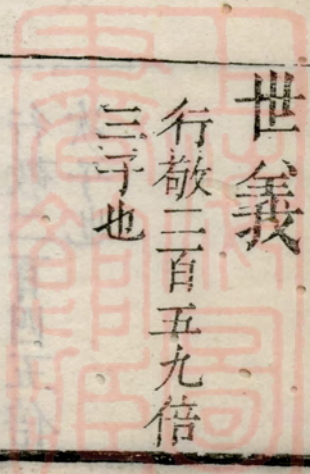 世義
行敬二百五九倍
三子也